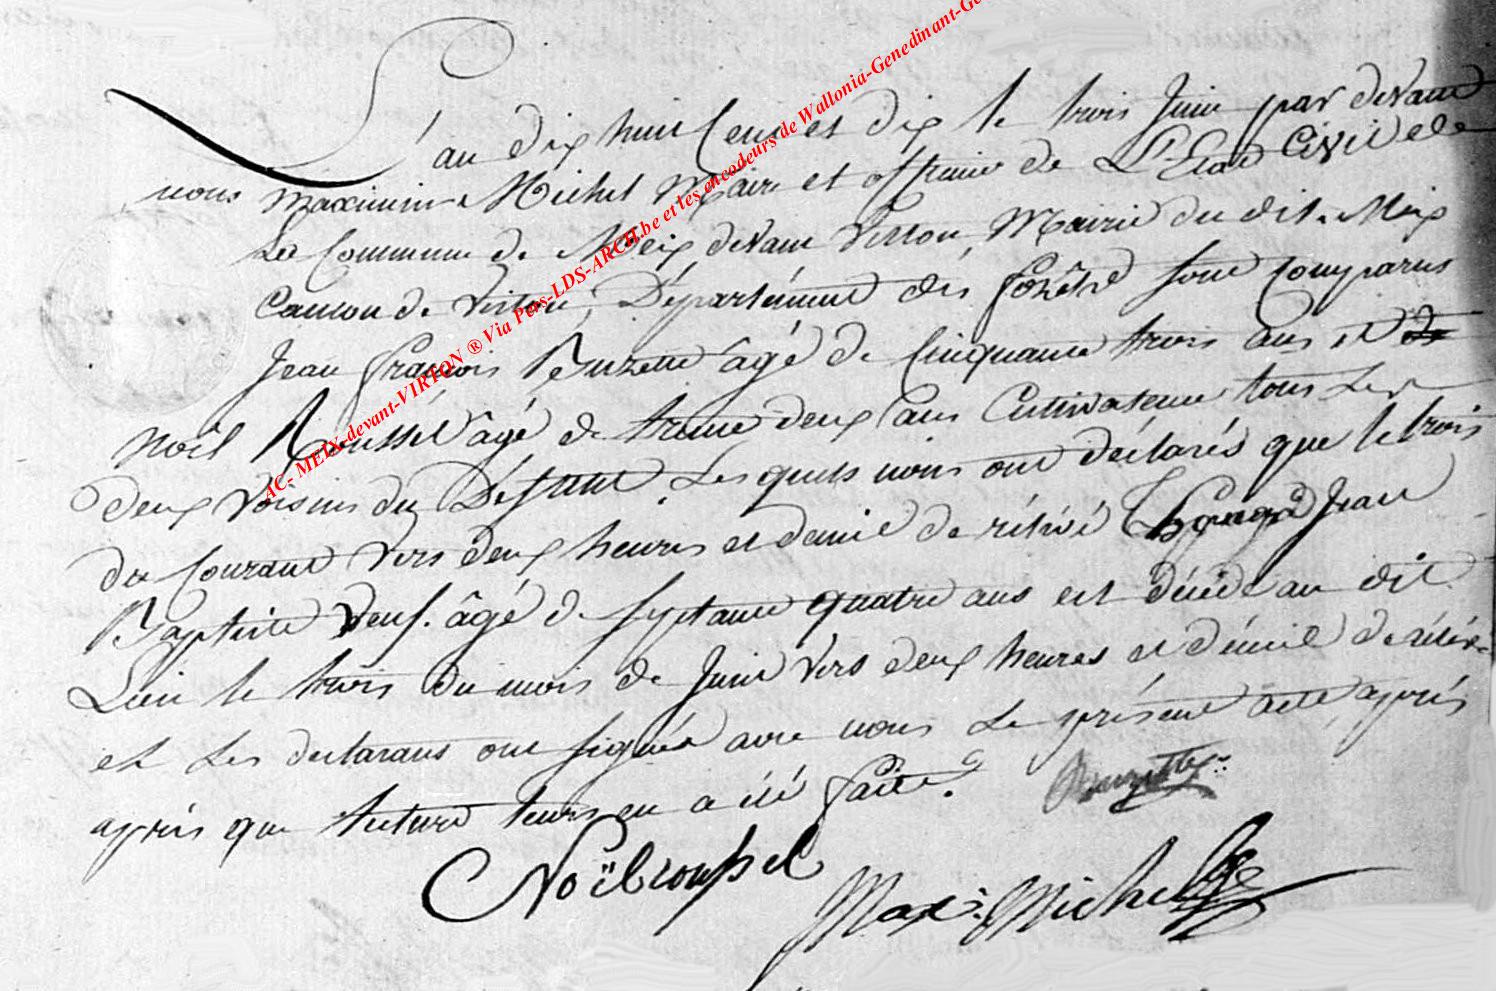 L'an dix huit cent et dix le trois Juin par devant
nous Maximin Michel Maire et officier de L'Etat Civil de
La Commune de Meix devant Virton, Mairie du dit Meix
Canton de Virton, Département des forêts sont comparus
Jean françois Buzette âgé de Cinquante trois ans et de
Noël Roussel âgé de trente deux ans Cultivateur tous Les
deux Voisins du Défunt. Les quels nous ont déclarés que le trois
du Courant vers deux heures et demie de rélevé Jean
Baptiste Veuf. âgé de septante quatre ans est décédé au dit
Lieu le trois du mois de Juin vers deux heures et démie de rélévé
et Les declarans ont signés avec nous Le présent acte après
après que lecture leurs en a été faite.
Noël roussel
Max: Michel
AC- MEIX-devant-VIRTON ® Via Pers-LDS-ARCH.be et les encodeurs de Wallonia-Genedinant-Ge